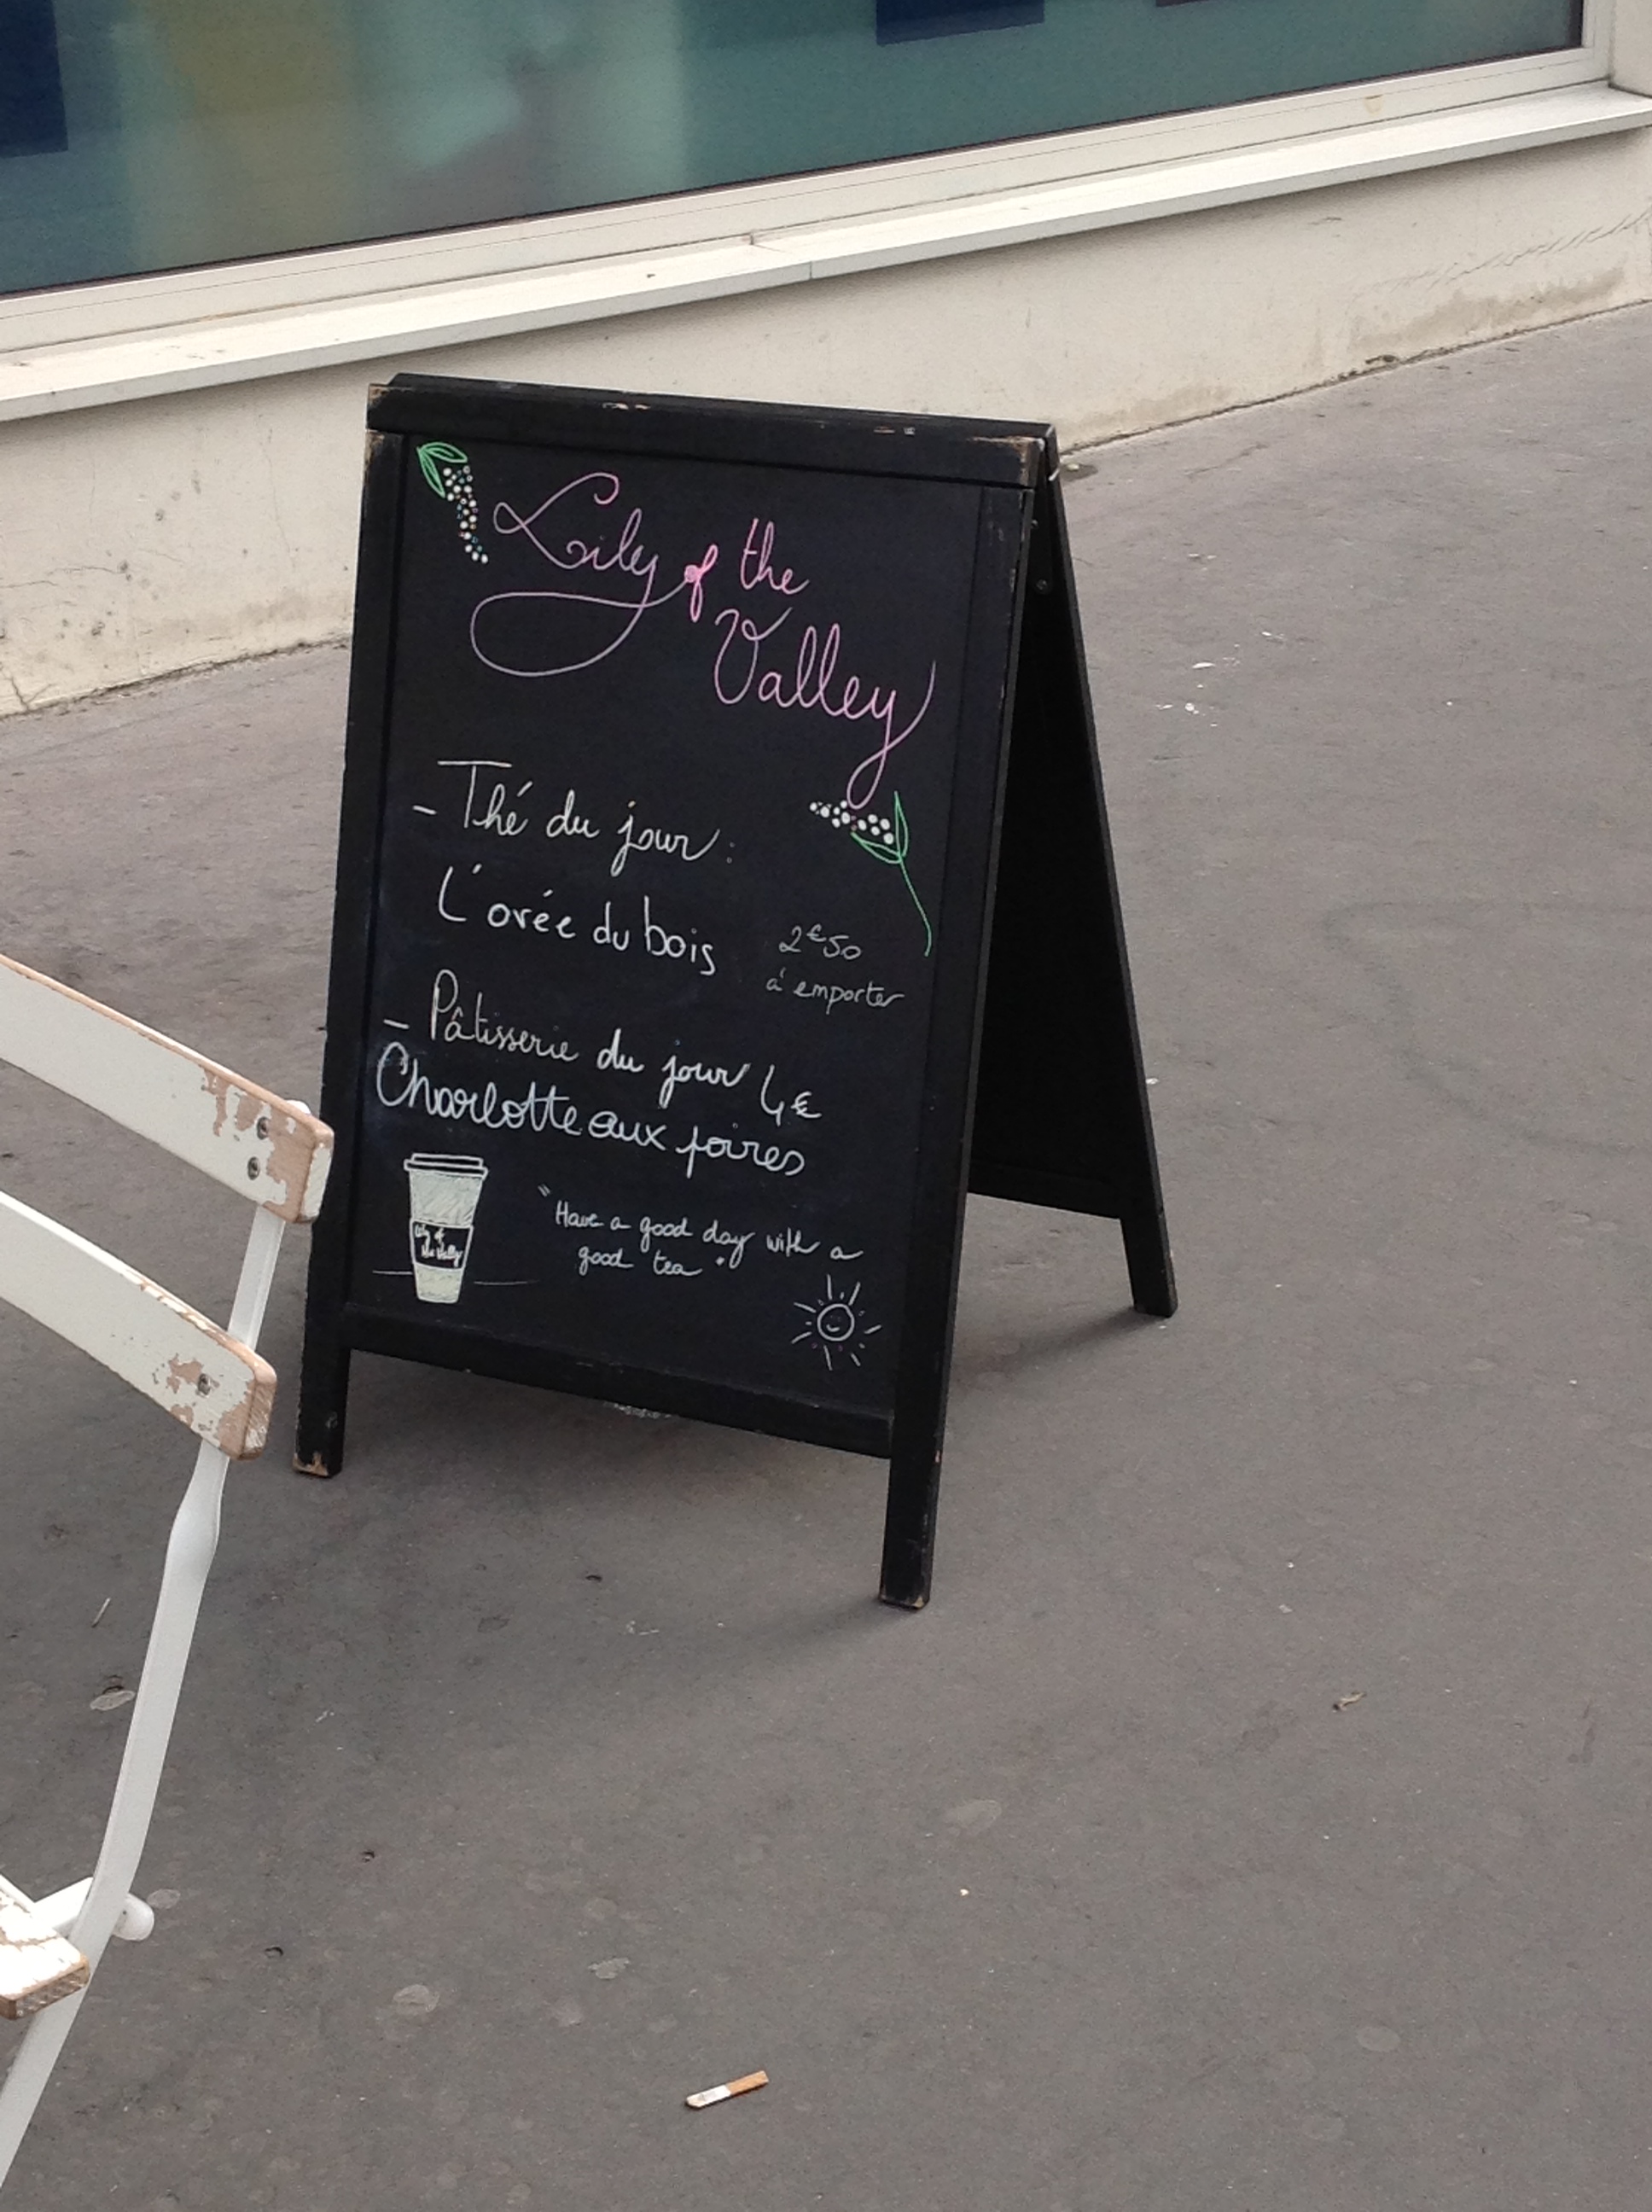 Lily of the
Valley
- Thé du jour :
L'orée du bois
2€50
à emporter
- Pâtisserie du jour 4€
Charlotte aux poires
Lily of
the Valley
"Have a good day with a
good tea"